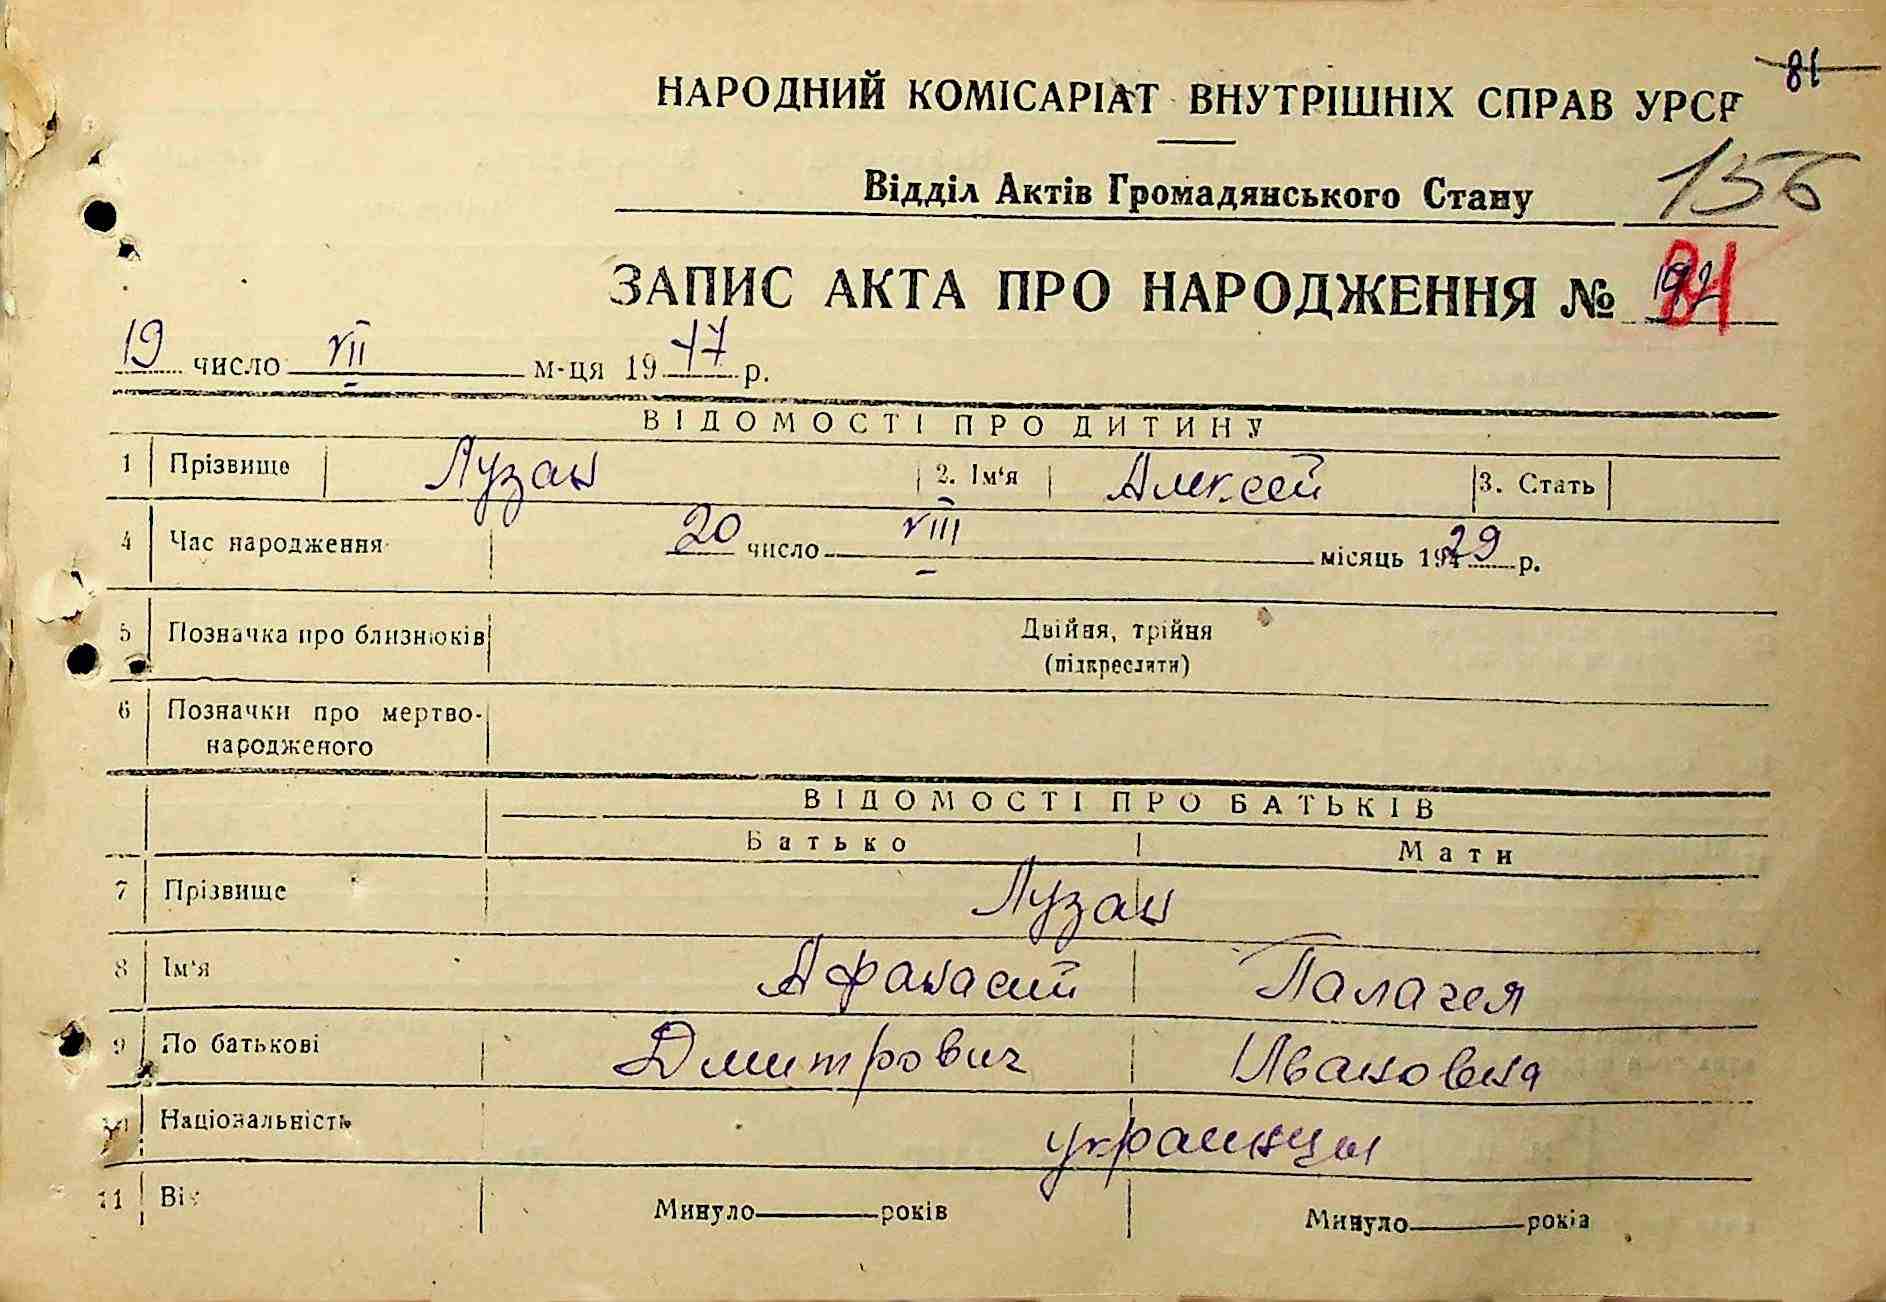 81
НАРОДНИЙ КОМІСАРІАТ ВНУТРІШНІХ СПРАВ УРСР
Відділ Актів Громадянського Стану 156
ЗАПИС АКТА ПРО НАРОДЖЕННЯ № 81
19 число VII м-ця 1947 р.
ВІДОМОСТІ ПРО ДИТИНУ
1 Прізвище Лузан 2. Ім'я Алексей 3. Стать
4 Час народження 20 число VIII місяць 1929 р.
5 Позначка про близнюків Двійня, трійня
(підкреслити)
6 Позначки про мертво-
народженого
ВІДОМОСТІ ПРО БАТЬКІВ
Батько Мати
7 Прізвище Лузан
8 Ім'я Афанасий Палагея
9 По батькові Дмитрович Ивановна
10 Національність украинцы
11 Вік Минуло років Минуло років